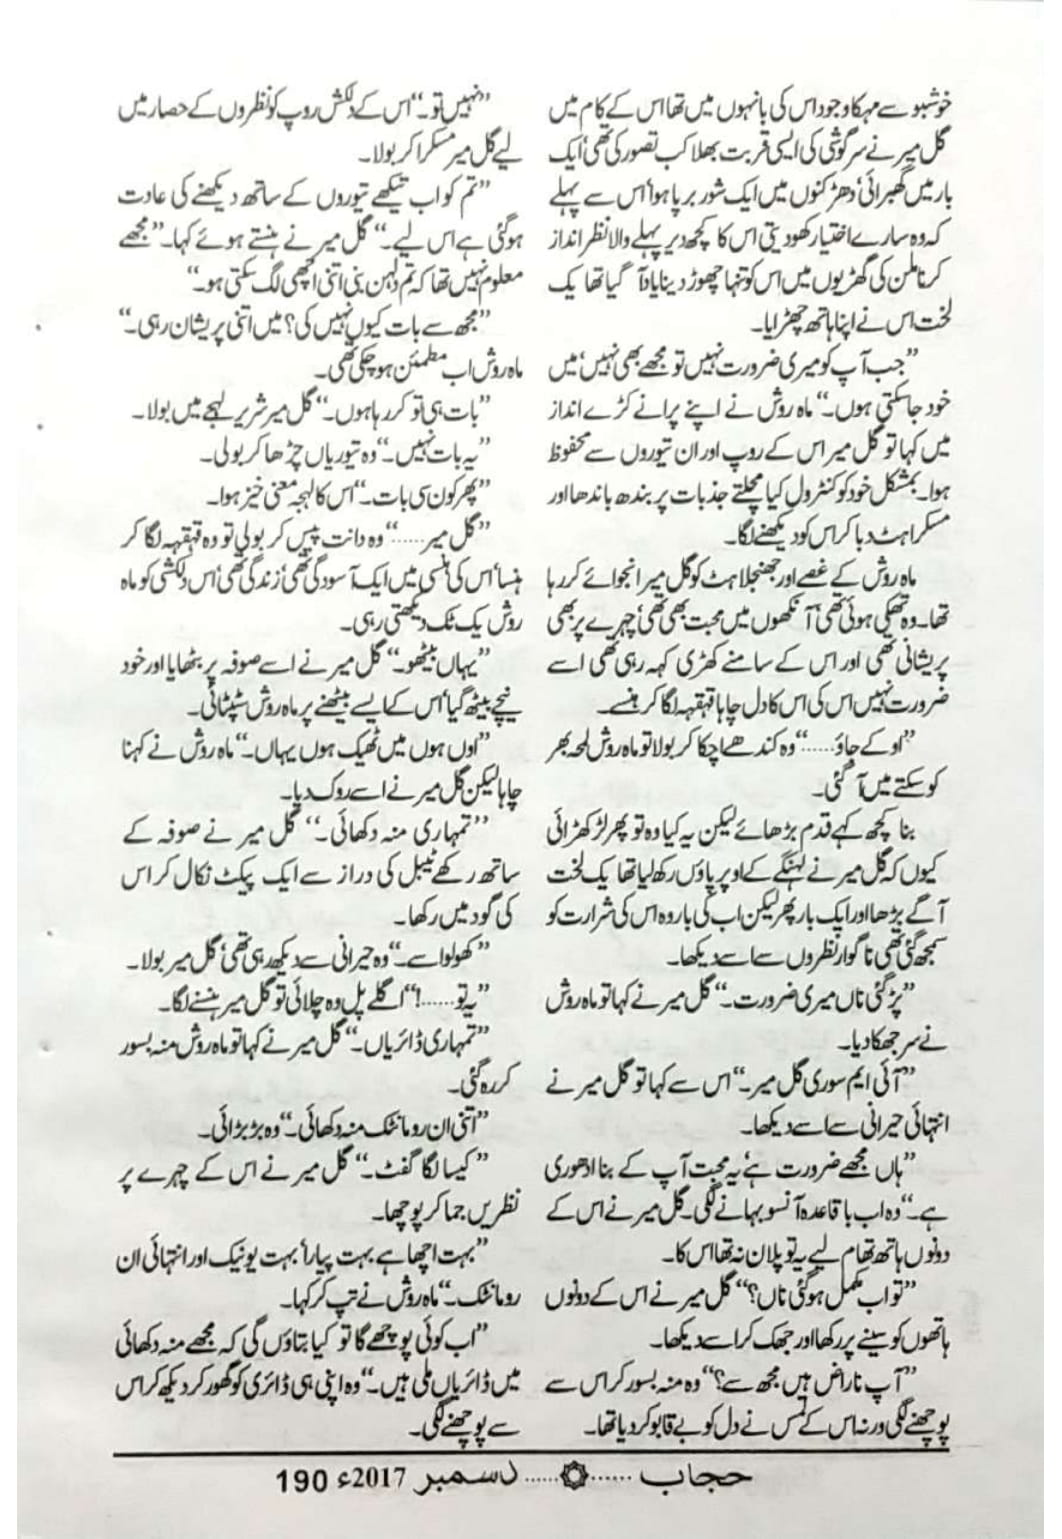 خوشبو سے مہکا وجود اس کی بانہوں میں تھا اس کے کام میں
گل میر نے سرگوشی کی ایسی قربت بھلا کب تصور کی تھی، ایک
بار میں گھبرائی، دھڑکنوں میں ایک شور برپا ہوا، اس سے پہلے
کہ وہ سارے اختیار کھو دیتی اس کا کچھ دیر پہلے والا نظر انداز
کرنا ملن کی گھڑیوں میں اس کو تنہا چھوڑ دینا یاد آ گیا تھا یک
لخت اس نے اپنا ہاتھ چھڑایا۔
”جب آپ کو میری ضرورت نہیں تو مجھے بھی نہیں، میں
خود جا سکتی ہوں۔“ ماہ روش نے اپنے پرانے کڑے انداز
میں کہا تو گل میر اس کے روپ اور ان تیوروں سے محفوظ
ہوا۔ بمشکل خود کو کنٹرول کیا مچلتے جذبات پر بندھ باندھا اور
مسکراہٹ دبا کر اس کو دیکھنے لگا۔
ماہ روش کے غصے اور جھنجلاہٹ کو گل میر انجوائے کر رہا
تھا۔ وہ تھکی ہوئی تھی، آنکھوں میں محبت بھی تھی، چہرے پر بھی
پریشانی تھی اور اس کے سامنے کھڑی کہہ رہی تھی اسے
ضرورت نہیں اس کی اس کا دل چاہا قہقہہ لگا کر ہنسے۔
”اوکے جاؤ......“ وہ کندھے اچکا کر بولا تو ماہ روش لمحہ بھر
کو سکتے میں آ گئی۔
بنا کچھ کہے قدم بڑھائے لیکن یہ کیا وہ تو پھر لڑکھڑائی
کیوں کہ گل میر نے لہنگے کے اوپر پاؤں رکھ لیا تھا یک لخت
آگے بڑھا اور ایک بار پھر لیکن اب کی بار وہ اس کی شرارت کو
سمجھ گئی تھی ناگوار نظروں سے اسے دیکھا۔
”پڑ گئی ناں میری ضرورت۔“ گل میر نے کہا تو ماہ روش
نے سر جھکا دیا۔
”آئی ایم سوری گل میر۔“ اس سے کہا تو گل میر نے
انتہائی حیرانی سے اسے دیکھا۔
”ہاں مجھے ضرورت ہے، یہ محبت آپ کے بنا ادھوری
ہے۔“ وہ اب باقاعدہ آنسو بہانے لگی۔ گل میر نے اس کے
دونوں ہاتھ تھام لیے یہ تو پلان نہ تھا اس کا۔
”تو اب مکمل ہو گئی ناں؟“ گل میر نے اس کے دونوں
ہاتھوں کو سینے پر رکھا اور جھک کر اسے دیکھا۔
”آپ ناراض ہیں مجھ سے؟“ وہ منہ بسور کر اس سے
پوچھنے لگی ورنہ اس کے لمس نے دل کو بے قابو کر دیا تھا۔
”نہیں تو۔“ اس کے دلکش روپ کو نظروں کے حصار میں
لیے گل میر مسکرا کر بولا۔
”تم کو اب تیکھے تیوروں کے ساتھ دیکھنے کی عادت
ہو گئی ہے اس لیے۔“ گل میر نے ہنستے ہوئے کہا۔ ”مجھے
معلوم نہیں تھا کہ تم دلہن بنی اتنی اچھی لگ سکتی ہو۔“
”مجھ سے بات کیوں نہیں کی؟ میں اتنی پریشان رہی۔“
ماہ روش اب مطمئن ہو چکی تھی۔
”بات ہی تو کر رہا ہوں۔“ گل میر شریر لہجے میں بولا۔
”یہ بات نہیں۔“ وہ تیوریاں چڑھا کر بولی۔
”پھر کون سی بات۔“ اس کا لہجہ معنی خیز ہوا۔
”گل میر......“ وہ دانت پیس کر بولی تو وہ قہقہہ لگا کر
ہنسا، اس کی ہنسی میں ایک آسودگی تھی، زندگی تھی، اس دلکشی کو ماہ
روش یک ٹک دیکھتی رہی۔
”یہاں بیٹھو۔“ گل میر نے اسے صوفہ پر بٹھایا اور خود
نیچے بیٹھ گیا، اس کے ایسے بیٹھنے پر ماہ روش سٹپٹائی۔
”اوں ہوں میں ٹھیک ہوں یہاں۔“ ماہ روش نے کہنا
چاہا لیکن گل میر نے اسے روک دیا۔
”تمہاری منہ دکھائی۔“ گل میر نے صوفہ کے
ساتھ رکھے ٹیبل کی دراز سے ایک پیکٹ نکال کر اس
کی گود میں رکھا۔
”کھولو اسے۔“ وہ حیرانی سے دیکھ رہی تھی، گل میر بولا۔
”یہ تو......!“ اگلے پل وہ چلائی تو گل میر ہنسنے لگا۔
”تمہاری ڈائریاں۔“ گل میر نے کہا تو ماہ روش منہ بسور
کر رہ گئی۔
”اتنی ان رومانٹک منہ دکھائی۔“ وہ بڑبڑائی۔
”کیسا لگا گفٹ۔“ گل میر نے اس کے چہرے پر
نظریں جما کر پوچھا۔
”بہت اچھا ہے بہت پیارا، بہت یونیک اور انتہائی ان
رومانٹک۔“ ماہ روش نے تپ کر کہا۔
”اب کوئی پوچھے گا تو کیا بتاؤں گی کہ مجھے منہ دکھائی
میں ڈائریاں ملی ہیں۔“ وہ اپنی ہی ڈائری کو گھور کر دیکھ کر اس
سے پوچھنے لگی۔
حجاب ...... ...... دسمبر 2017ء 190